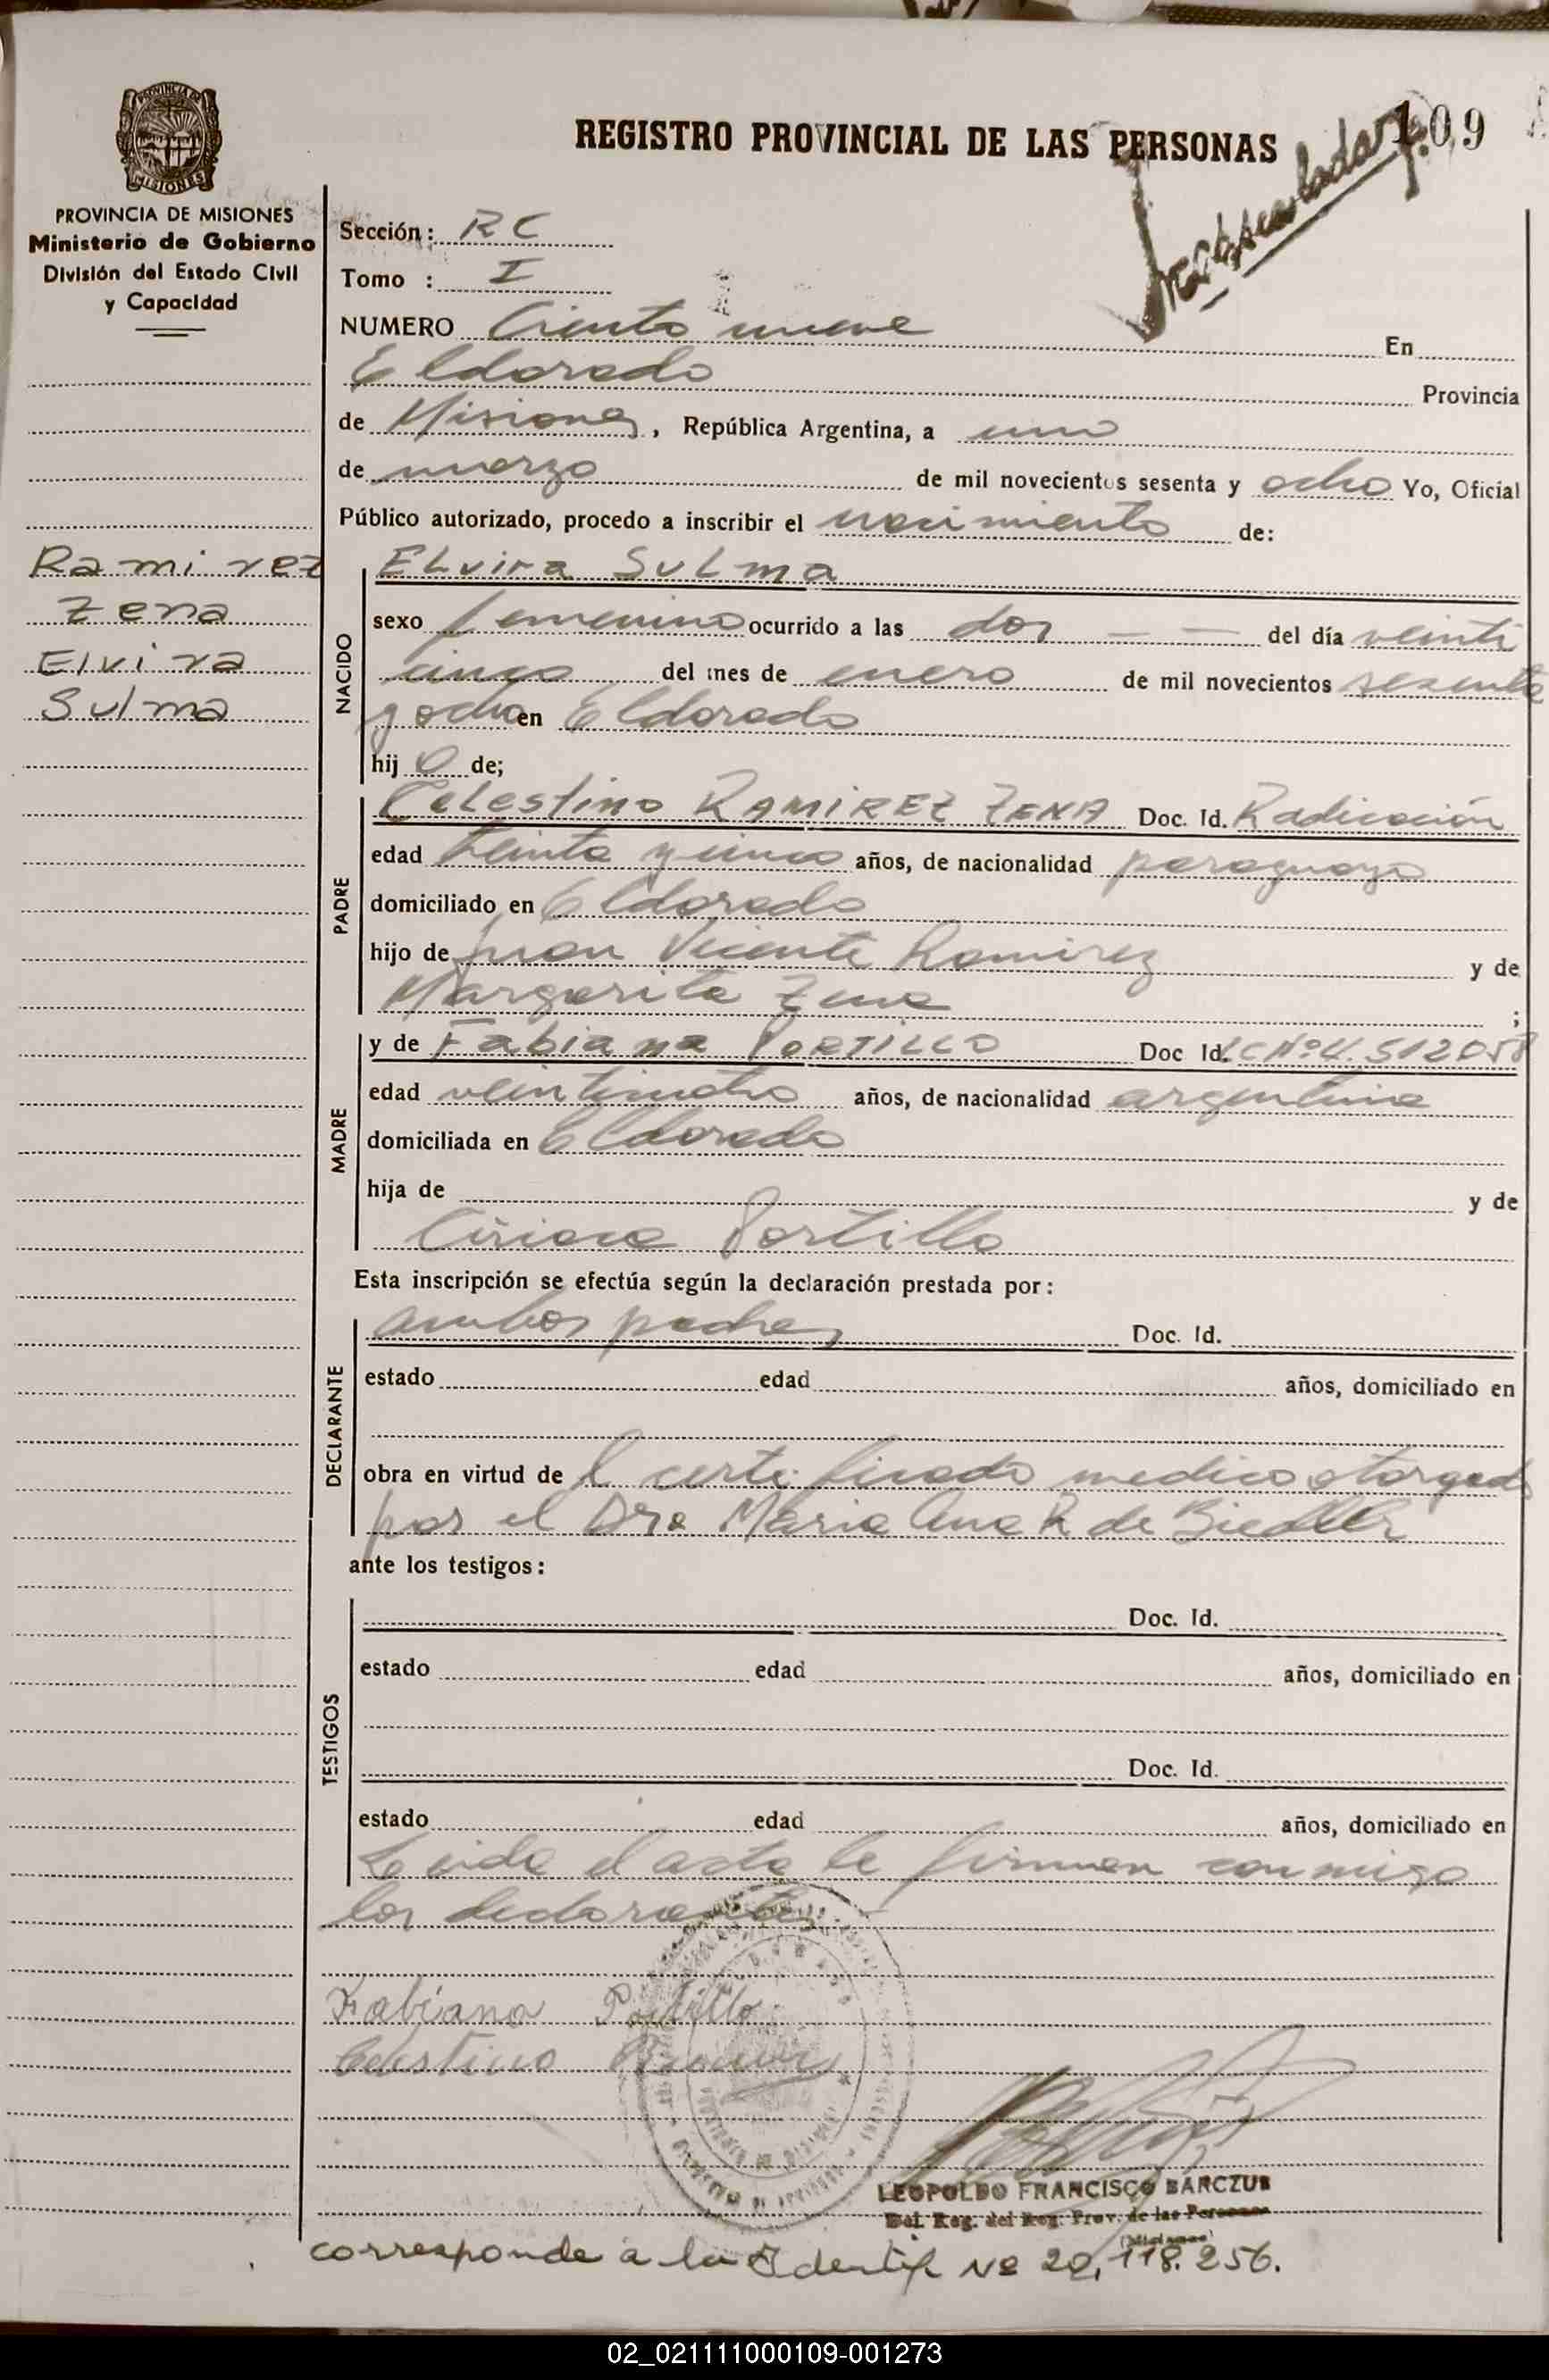 REGISTRO PROVINCIAL DE LAS PERSONAS
109
PROVINCIA DE MISIONES
Ministerio de Gobierno
División del Estado Civil
y Capacidad
Sección: RC
Tomo : I
NUMERO Ciento nueve En
Eldorado Provincia
de Misiones, República Argentina, a uno
de marzo de mil novecientos sesenta y ocho Yo, Oficial
Público autorizado, procedo a inscribir el nacimiento de:
Ramirez
Zena
Elvira
Sulma
NACIDO
ELvira SuLma
sexo femenino ocurrido a las dos - - del día veinti
cinco del mes de enero de mil novecientos sesenta
y ocho en Eldorado
hij a de;
PADRE
Celestino RAMIREZ ZENA Doc. Id. Radicación
edad treinta y cinco años, de nacionalidad paraguaya
domiciliado en Eldorado
hijo de Juan Vicente Ramirez y de
Margarita Zena ;
MADRE
y de Fabiana PORTILLO Doc Id. LC Nº 4.512058
edad años, de nacionalidad argentina
domiciliada en Eldorado
hija de y de
Portillo
Esta inscripción se efectúa según la declaración prestada por:
DECLARANTE
ambos padres Doc. Id.
estado edad años, domiciliado en
obra en virtud de l certificado medico otorgado
por el Dra Maria Ana R de
ante los testigos:
TESTIGOS
Doc. Id.
estado edad años, domiciliado en
Doc. Id.
estado edad años, domiciliado en
Leida el acta la firman conmigo
los declarantes
Fabiana Portillo
Celestino Ramirez
LEOPOLDO FRANCISCO BARCZUK
Del. Reg. del Reg. Prov. de las Personas
(Misiones)
corresponde a la Identif Nº 20,118.256.
02_021111000109-001273